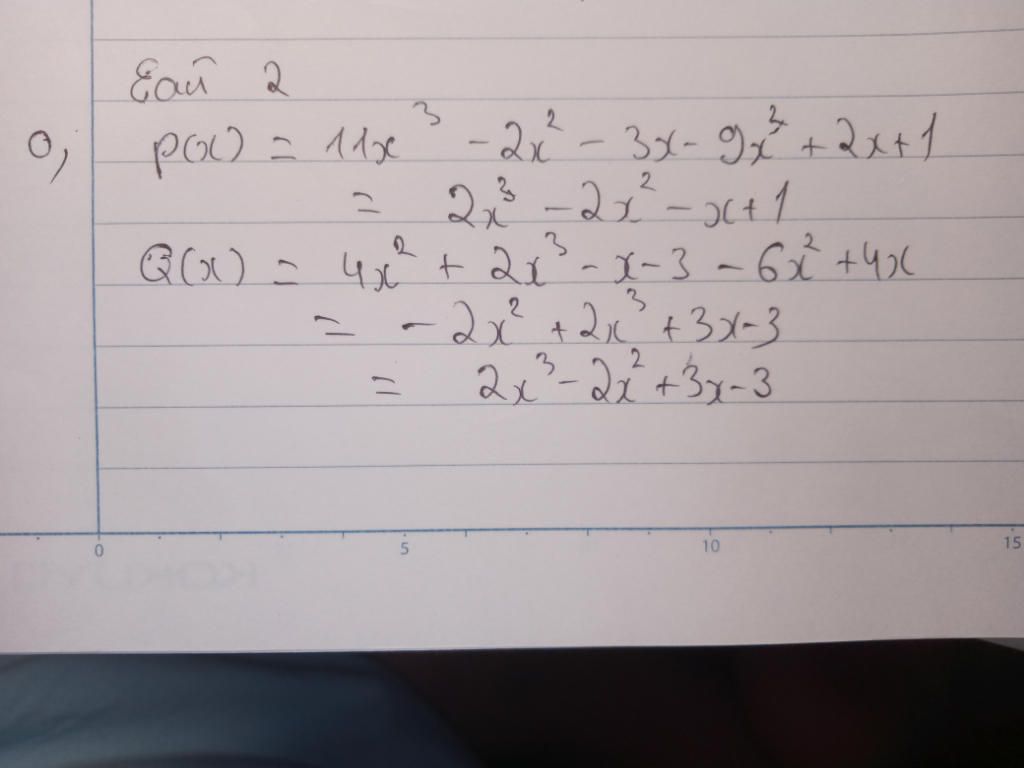 Bài 2
a, P(x) = 11x³ - 2x² - 3x - 9x³ + 2x + 1
= 2x³ - 2x² - x + 1
Q(x) = 4x² + 2x³ - x - 3 - 6x² + 4x
= - 2x² + 2x³ + 3x - 3
= 2x³ - 2x² + 3x - 3
0 5 10 15